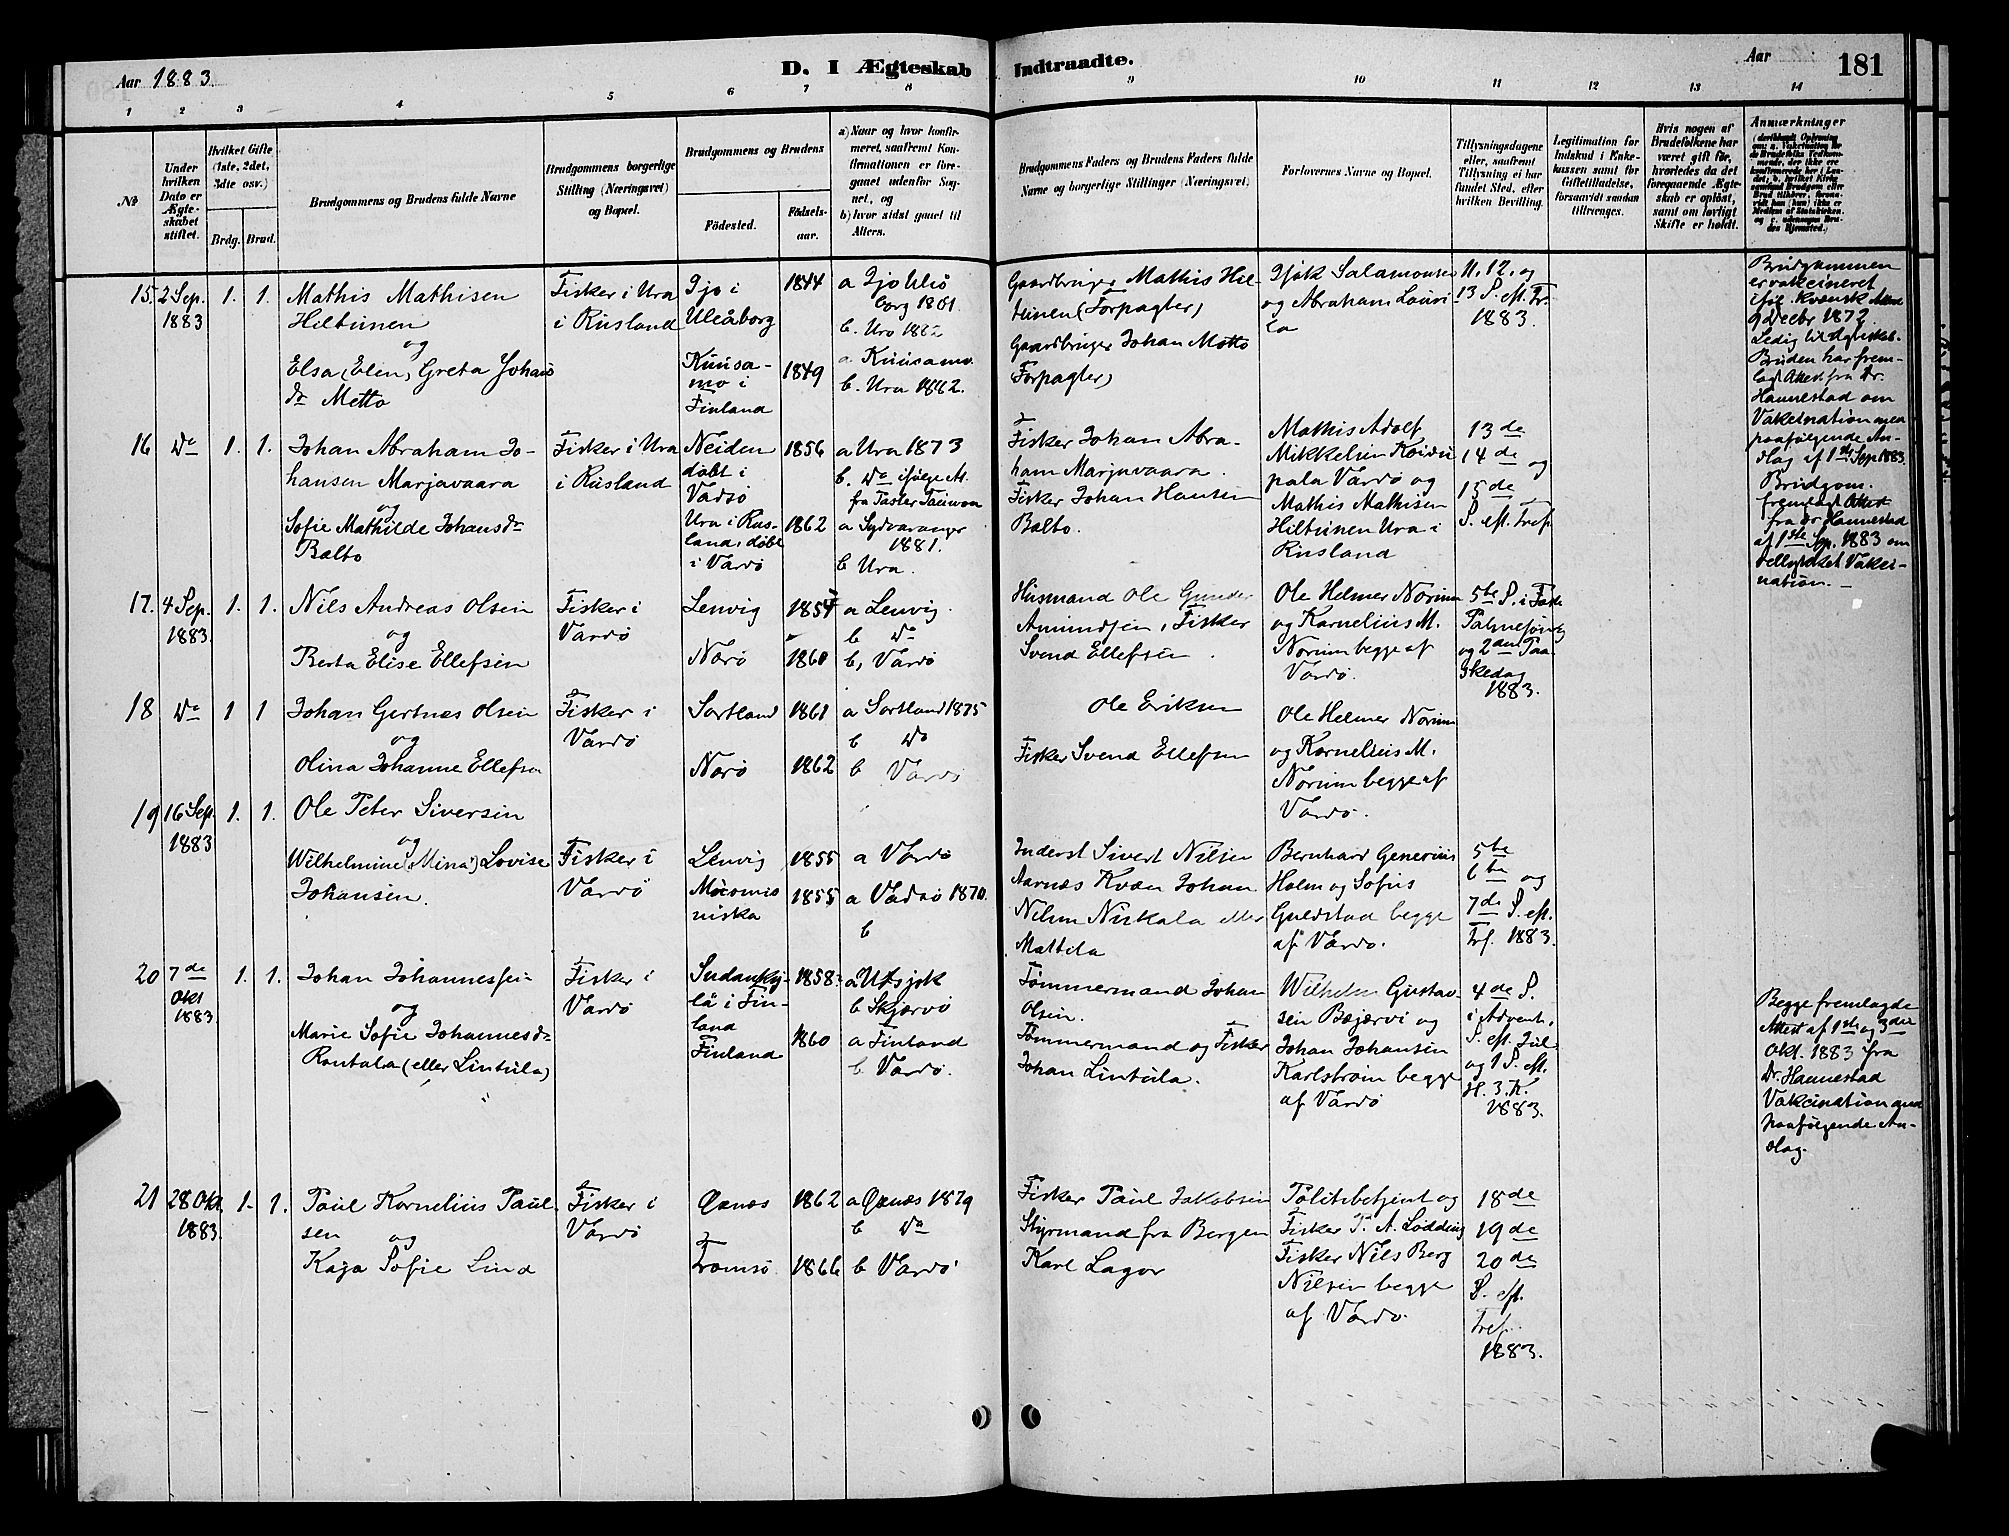 Aar 1883.
D. I Ægteskab Indtraadte.
Aar
181
1 2 3 4 5 6 7 8 9 10 11 12 13 14
No
Under
hvilken
Dato er
Ægte-
skabet
stiftet.
Hvilket Gifte
(1ste, 2det,
3dte osv.)
Brdg. Brud.
Brudgommens og Brudens fulde Navne
Brudgommens borgerlige
Stilling (Næringsvei)
og Bopæl.
Brudgommens og Brudens
Fødested.
Fødsels-
aar.
a) Naar og hvor konfir-
meret, saafremt Kon-
firmationen er fore-
gaaet udenfor Sog-
net, og
b) hvor sidst gaaet til
Alters.
Brudgommens Faders og Brudens Faders fulde
Navne og borgerlige Stillinger (Næringsvei)
Forlovernes Navne og Bopæl.
Tillysningsdagene
eller, saafremt
Tillysning ei har
fundet Sted, efter
hvilken Bevilling.
Legitimation for
Indskud i Enke-
kassen samt for
Giftetilladelse,
forsaavidt saadan
tiltrænges.
Hvis nogen af
Brudefolkene har
været gift før,
hvorledes da det
foregaaende Ægte-
skab er opløst,
samt om lovligt
Skifte er holdt.
Anmærkninger
15. 2 Sep.
1883
1. 1.
Mathis Mathisen
Hiltunen
og
Elsa (Elen) Greta Johans
dr Metto
Fisker i Ura
i Rusland
Ijo i
Uleåborg
1844
Kuusa-
mo i
Finland
1849
borg 1861.
b. Ura 1882
a. Kuusamo
b. Ura 1882.
Gaardbruger Mathis Hil-
tunen (Forpagter)
Gaardbruger Johan Metto
Forpagter)
Salamonsen
og Abraham Lauri-
la
11. 12. og
13 S. eft. Tr.
1883.
Brudgommen
er vakcineret
iføl. Kvænsk Attest
9 Decbr 1872.
Ledig til Ægteskab.
Bruden har frem-
lagt Attest fra Dr.
Hannestad om
Vakcination med
paafølgende An-
slag af 1ste Sep 1883
16 Do
1. 1.
Johan Abraham Jo-
hansen Marjavaara
og
Sofie Mathilde Johansdr
Balto
Fisker i Ura
i Rusland
Neiden
døbt i
Vadsø
1856
Ura i Rus-
land, døbt
i Vardø
1862
a Ura 1873
b. Do ifølge At.
fra
a Sydvaranger
1881.
b Ura.
Fisker Johan Abra-
ham Marjavaara.
Fisker Johan Hansen
Balto.
Mathis Adolf
Mikkelsen
pala Vardø og
Mathis Mathisen
Hiltunen Ura i
Rusland
13 de
14 de og
15 de
S. eft. Tref.
Brudgom.
fremlagt Attest
fra Dr. Hannestad
af 1ste Sep. 1883 om
vellykket Vakci-
nation. —
17. 4 Sep.
1883.
1. 1.
Nils Andreas Olsen
og
Berta Elise Ellefsen
Fisker i
Vardø
Lenvig
1854
Norø
1860
a Lenvig.
b Do
b, Vardø
Husmand Ole Gunder
Amundsen, Fisker
Svend Ellefsen.
Ole Helmer Norum
og Kornelius M.
Norum begge af
Vardø.
5te S. i Faste
Palmesøndg
og 2den Paa-
skedag
1883.
18 Do
1 1
Johan Gertnæs Olsen
og
Olina Johanne Ellefsen
Fisker i
Vardø
Sortland
1861
Norø
1862
a Sortland 1875
b Do
b Vardø
Ole Eriksen
Fisker Svend Ellefsen
Ole Helmer Norum
og Kornelius M.
Norum begge af
Vardø.
19 16 Sep.
1883
1. 1.
Ole Peter Siversen
og
Wilhelmine (Mina) Lovise
Johansen.
Fisker i
Vardø
Lenvig
1855
niska
1855
a Vardø
a Vadsø 1870.
b
Inderst Sivert Nilsen
Aarnæs Kvæn Johan
Nilsen Niskala eller
Mattila
Bernhard Generius
Holm og Sofus
Guldstad begge
af Vardø.
5te
6te og
7de S. eft.
Trf. 1883.
20 7de
Okt
1883.
1. 1.
Johan Johannessen
og
Marie Sofie Johannesdr
Rantala (eller Lintula)
Fisker i
Vardø
Sudanky-
lä i Fin-
land
1858.
Finland
1860
a Utsjok
b Skjærvø
a Finland
b Vardø.
Tømmermand Johan
Olsen.
Tømmermand og Fisker
Johan Lintula.
Wilhelm Gustav-
sen Bæjærvi og
Johan Johansen
Karlstrøm begge
af Vardø
4de S.
i Advent,
S. eft. Jul
og 1 S. eft.
H. 3. K.
1883.
Begge fremlagde
Attest af 1ste og 3die
Okt. 1883 fra
Dr. Hannestad
Vakcination med
paafølgende An-
slag.
21 28 Okt
1883.
1. 1.
Paul Kornelius Paul-
sen og
Kaja Sofie Lind
Fisker i
Vardø
Øxnæs
1862
Tromsø
1866
a Øxnæs 1879
b Do
b Vardø
Fisker Paul Jakobsen
Styrmand fra Bergen
Karl Lagor
Politibetjent og
Fisker P. A. Lødding
Fisker Nils Berg
Nilsen begge
af Vardø.
18 de
19 de
20 de
S. eft.
Tref.
1883.